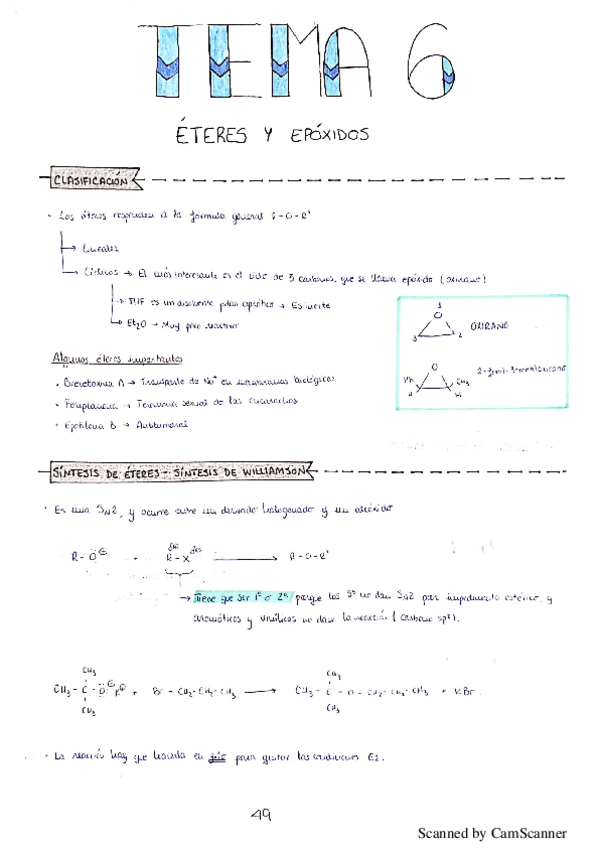 TEMA 6
ÉTERES Y EPÓXIDOS
CLASIFICACIÓN
· Los éteres responden a la fórmula general R-O-R'
→ Lineales
→ Cíclicos → El más interesante es el ciclo de 3 carbonos, que se llama epóxido (oxirano)
→ THF es un disolvente polar aprótico → Es inerte
→ Et₂O → Muy poco reactivo
1
O
3 2
OXIRANO
Algunos éteres importantes
· Brevetoxina A → Transporte de Na⁺ en membranas biológicas
· Periplanona → Feromona sexual de las cucarachas
· Epotilona B → Antitumoral
O
Ph CH₃
H H
SÍNTESIS DE ÉTERES - SÍNTESIS DE WILLIAMSON
· Es una SN2, y ocurre entre un derivado halogenado y un alcóxido
R-O⊖ + R-X → R-O-R'
→ Tiene que ser 1º o 2º, porque los 3º no dan SN2 por impedimento estérico, y
aromáticos y vinílicos no dan la reacción (carbono sp²).
CH₃ CH₃
CH₃-C-O⊖ K⊕ + Br-CH₂-CH₂-CH₃ → CH₃-C-O-CH₂-CH₂-CH₃ + KBr
CH₃ CH₃
· La reacción hay que hacerla en frío para evitar las condiciones E2.
49
Scanned by CamScanner